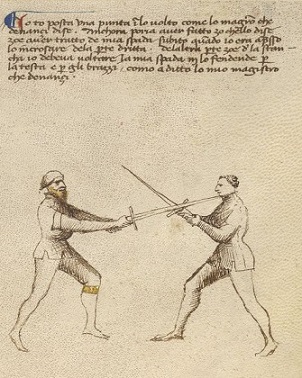 Io to posta una punta in lo volto come lo magistro che
denanci dise. Anchora poria aver fatto zo chello dise
zoe aver tratto de mia spada subito quado io era apsso
lo incrosare dela pte dritta. delaltra pte zoe d'la stan-
cha io debeva voltare la mia spada in lo fendente p
la testa e p gli brazzi, como a ditto lo mio magistro
che denançi.